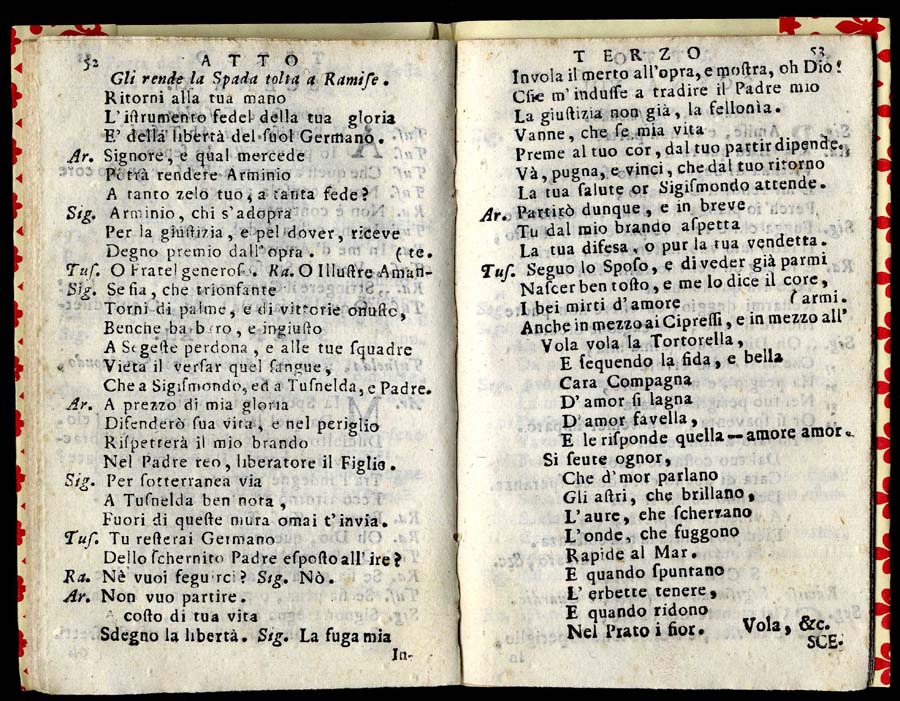 52 ATTO
Gli rende la Spada tolta a Ramiſe.
Ritorni alla tua mano
L'iſtrumento fedel della tua gloria
E' della libertà del ſuol Germano.
Ar. Signore, e qual mercede
Potrà rendere Arminio
A tanto zelo tuo, a tanta fede?
Sig. Arminio, chi s'adopra
Per la giuſtizia, e pel dover, riceve
Degno premio dall'opra. (te.
Tuſ. O Fratel generoſo. Ra. O Illuſtre Aman-
Sig. Se ſia, che trionfante
Torni di palme, e di vittorie onuſto,
Benche barbaro, e ingiuſto
A Segeſte perdona, e alle tue ſquadre
Vieta il verſar quel ſangue,
Che a Sigiſmondo, ed a Tuſnelda, e Padre.
Ar. A prezzo di mia gloria
Difenderò ſua vita, e nel periglio
Riſpetterà il mio brando
Nel Padre reo, liberatore il Figlio.
Sig. Per ſotterranea via
A Tuſnelda ben nota,
Fuori di queſte mura omai t'invia.
Tuſ. Tu reſterai Germano
Dello ſchernito Padre eſpoſto all'ire?
Ra. Nè vuoi ſeguirci? Sig. Nò.
Ar. Non vuo partire.
A coſto di tua vita
Sdegno la libertà. Sig. La fuga mia
In-
TERZO 53
Invola il merto all'opra, e moſtra, oh Dio!
Che m'induſſe a tradire il Padre mio
La giuſtizia non già, la fellonia.
Vanne, che ſe mia vita
Preme al tuo cor, dal tuo partir dipende.
Và, pugna, e vinci, che dal tuo ritorno
La tua ſalute or Sigiſmondo attende.
Ar. Partirò dunque, e in breve
Tu dal mio brando aſpetta
La tua difeſa, o pur la tua vendetta.
Tuſ. Seguo lo Spoſo, e di veder già parmi
Naſcer ben toſto, e me lo dice il core,
I bei mirti d'amore (armi.
Anche in mezzo ai Cipreſſi, e in mezzo all'
Vola vola la Tortorella,
E ſequendo la fida, e bella
Cara Compagna
D'amor ſi lagna
D'amor favella,
E le riſponde quella — amore amor.
Si ſeute ognor,
Che d'mor parlano
Gli aſtri, che brillano,
L'aure, che ſcherzano
L'onde, che fuggono
Rapide al Mar.
E quando ſpuntano
L'erbette tenere,
E quando ridono
Nel Prato i fior. Vola, &c.
SCE.